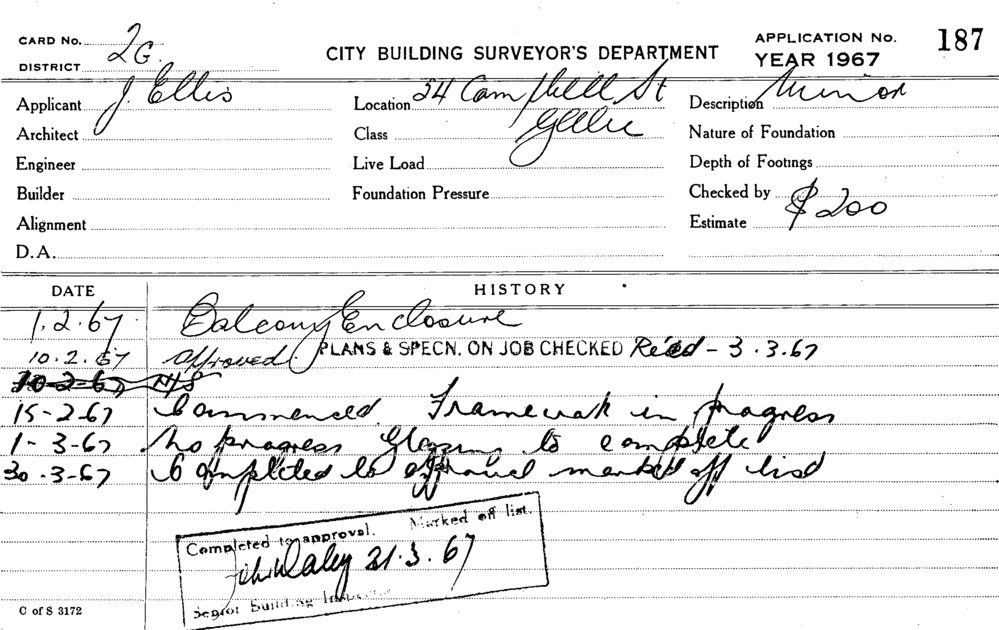 CARD No. 2G. CITY BUILDING SURVEYOR'S DEPARTMENT APPLICATION No. 187
DISTRICT YEAR 1967
Applicant J. Ellis Location 54 Campbell St Description Minor
Architect Class Glebe Nature of Foundation
Engineer Live Load Depth of Footings
Builder Foundation Pressure Checked by
Alignment Estimate $200
D.A.
DATE HISTORY
1.2.67 Balcony Enclosure
10.2.67 Approved. PLANS & SPECN. ON JOB CHECKED Rec'd - 3.3.67
10-2-67 N/S
15-2-67 Commenced. Framework in progress
1-3-67 No progress Glazing to complete
30.3-67 Completed to approval marked off list
Completed to approval. Marked off list.
31.3.67
Senior Building Inspector
C of S 3172